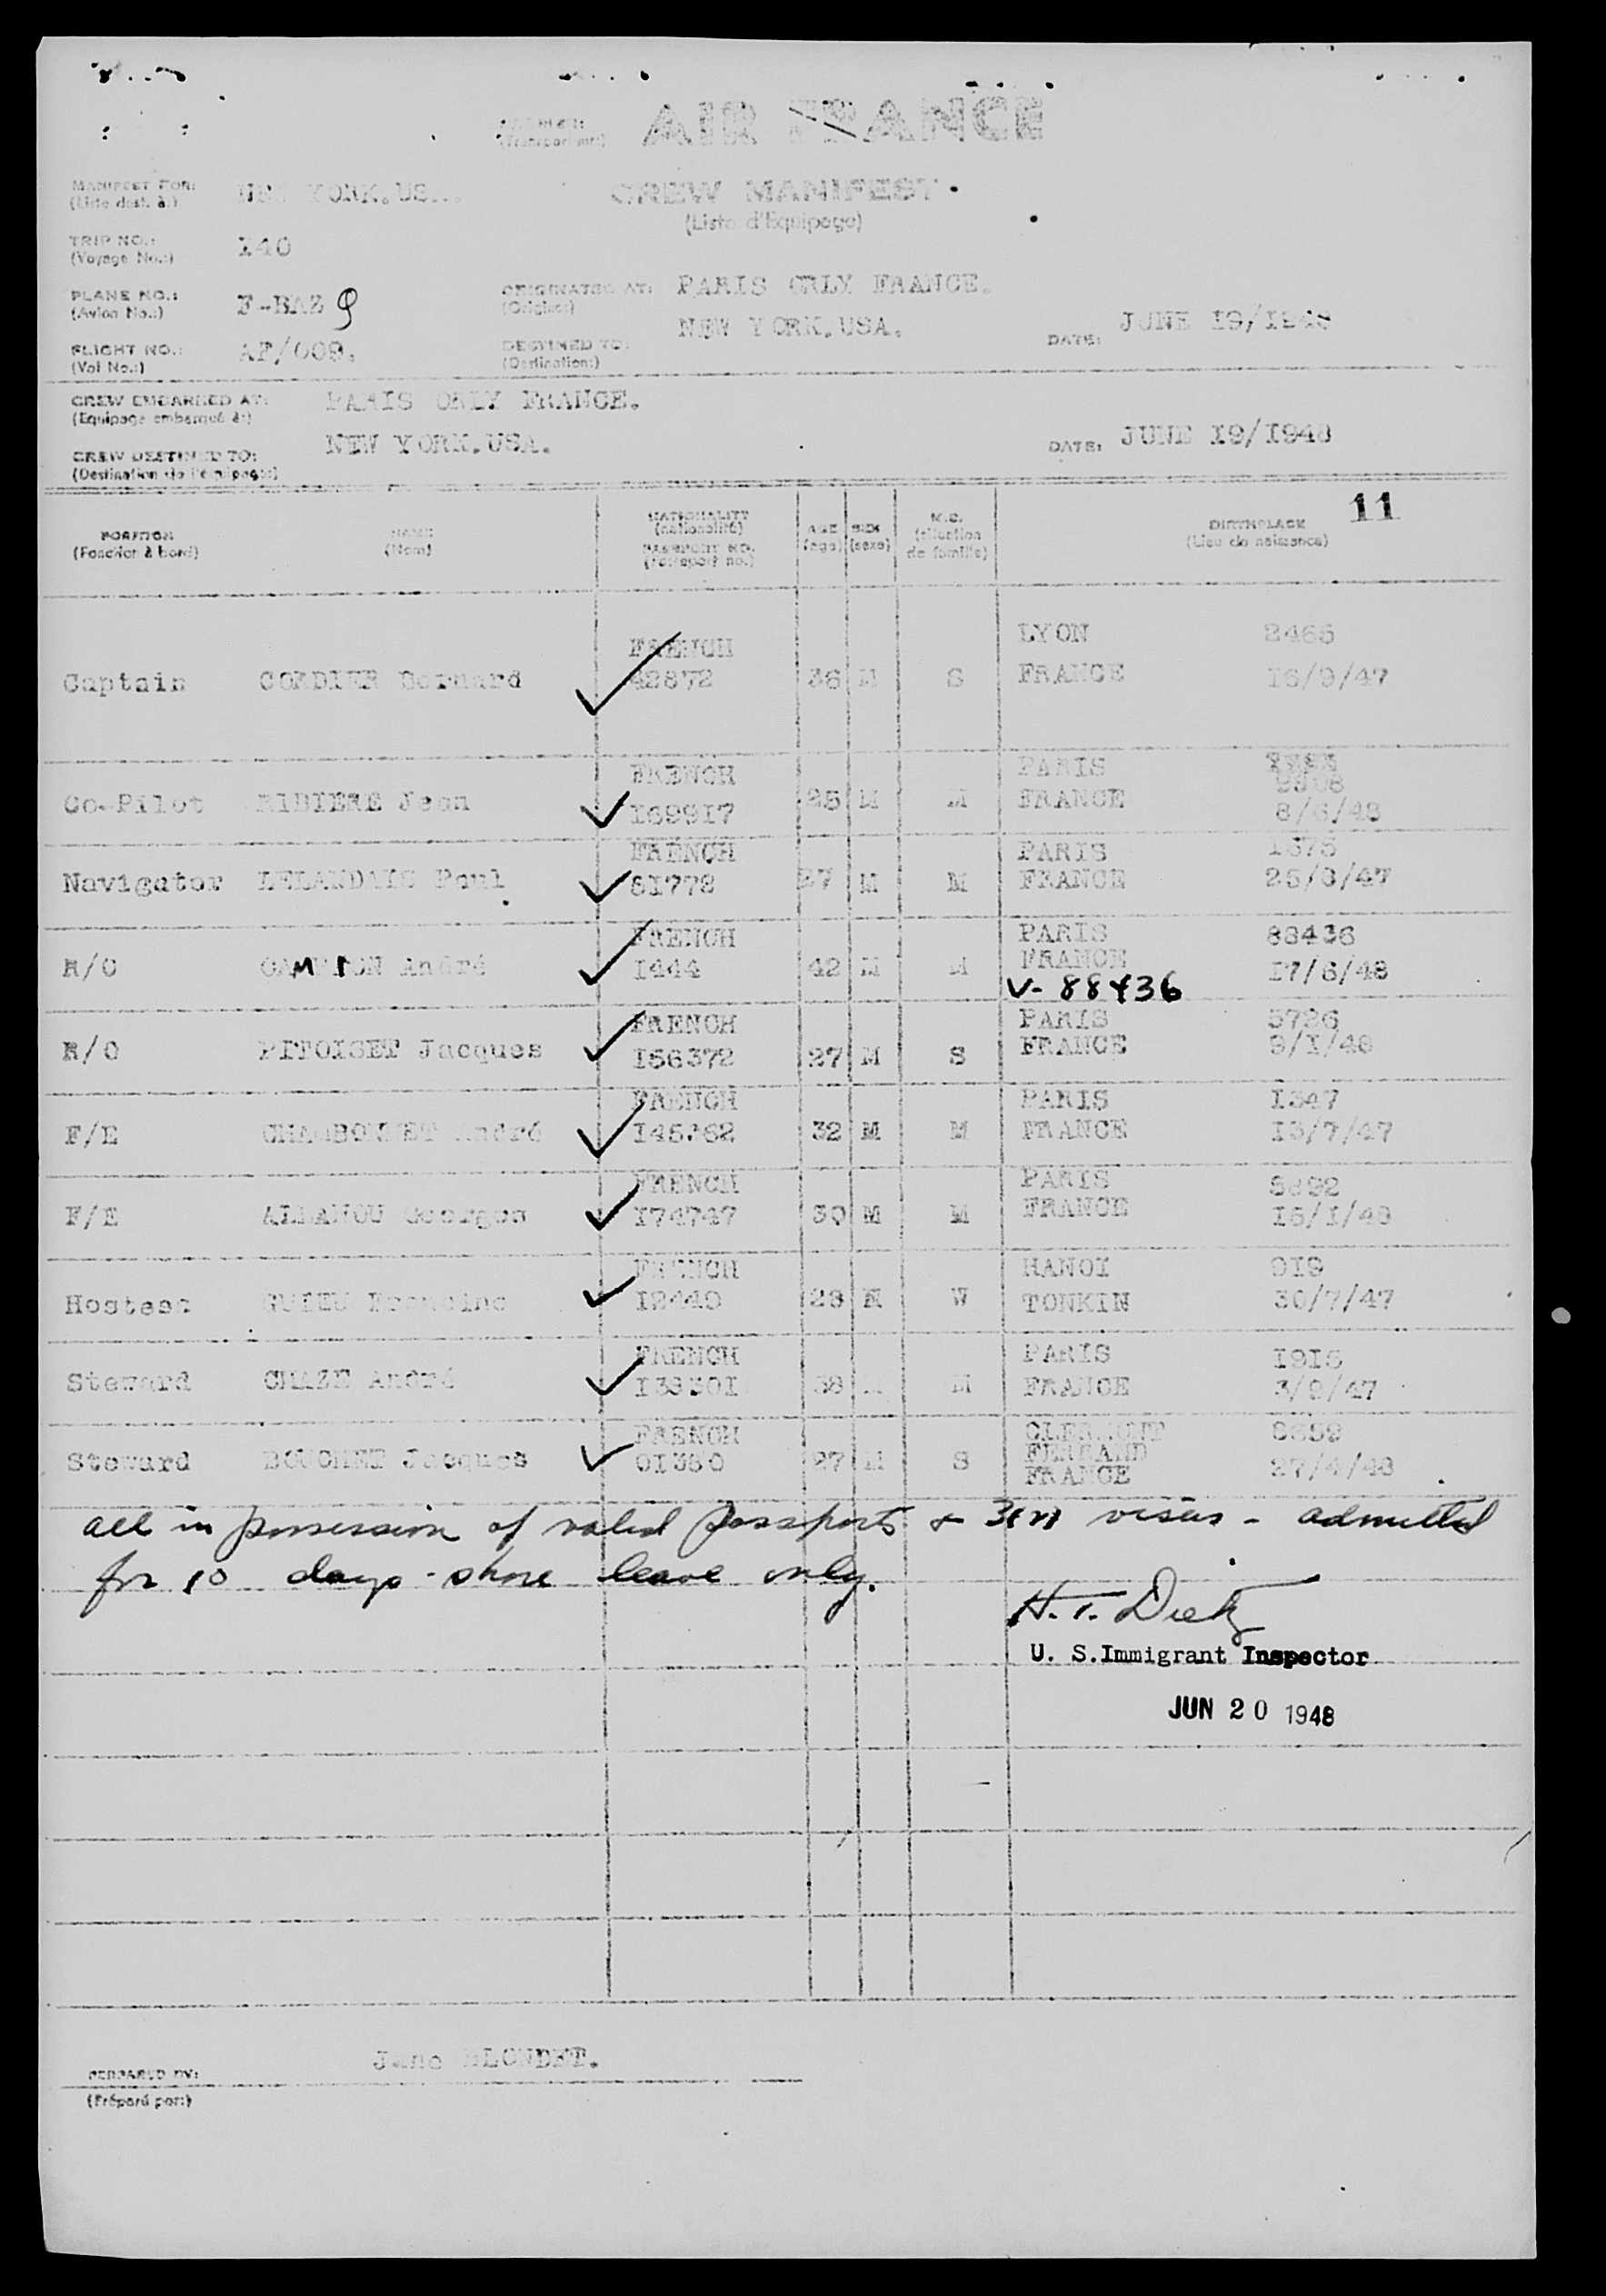 (Transportant:)
AIR FRANCE
MANIFEST FOR: YORK.US
(Liste dest. à:)
CREW MANIFEST
(Liste d'Equipage)
TRIP NO.: I40
(Voyage No.:)
PLANE NO.: F-BAZ
(Avion No.:)
ORIGINATED AT: PARIS ORLY FRANCE.
(Origine:)
FLIGHT NO.: AF/009.
(Vol No.:)
DESTINED TO: NEW YORK.USA.
(Destination:)
DATE: JUNE I9/I948
CREW EMBARKED AT: PARIS ORLY FRANCE.
(Equipage embarqué à:)
CREW DESTINED TO: NEW YORK.USA.
(Destination de l'équipage:)
DATE: JUNE I9/I948
11
POSITION
(Fonction à bord)
NAME
(Nom)
NATIONALITY
(nationalité)
PASSPORT NO.
(Passeport no.)
AGE
(age)
SEX
(sexe)
M.C.
(situation
de famille)
BIRTHPLACE
(Lieu de naissance)
FRENCH LYON 2465
Captain CORDIER Bernard 42872 36 M S FRANCE I6/9/47
FRENCH PARIS
Co-Pilot RIBIERE Jean I69917 25 M M FRANCE 8/6/48
FRENCH PARIS I675
Navigator LELANDAIS Paul 8I772 27 M M FRANCE 25/8/47
FRENCH PARIS 88436
R/O CAMPION André I444 42 M M FRANCE I7/6/48
V- 88436
FRENCH PARIS 5726
R/O PITOISET Jacques I56372 27 M S FRANCE 9/I/48
FRENCH PARIS I347
F/E André I45362 32 M M FRANCE I3/7/47
FRENCH PARIS
F/E ALLANOU Georges I74747 30 M M FRANCE I5/I/48
FRENCH HANOI 919
Hostess GUIEU Francine I2440 28 W TONKIN 30/7/47
FRENCH PARIS I9I5
Steward CHAZE André I38301 38 M FRANCE 3/9/47
FRENCH CLERMONT 8659
Steward BOUCHET Jacques 0I350 27 M S FERRAND 27/4/48
FRANCE
all in possession of valid passports & 3(5) visas - admitted
for 10 days - shore leave only.
H. T. Dietz
U. S.Immigrant Inspector
JUN 20 1948
PREPARED BY: BLONDET.
(Préparé par:)